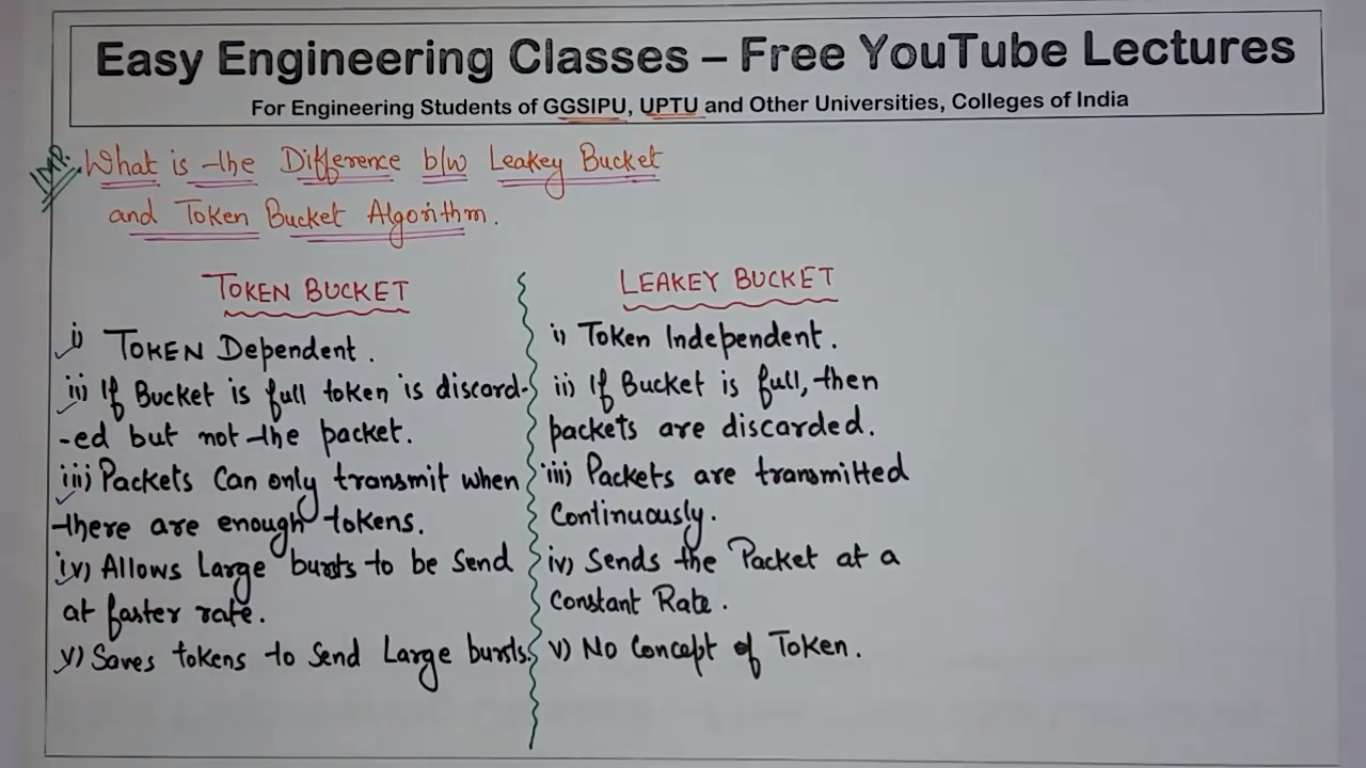 Easy Engineering Classes – Free YouTube Lectures
For Engineering Students of GGSIPU, UPTU and Other Universities, Colleges of India
IMP. What is the Difference b/w Leakey Bucket
and Token Bucket Algorithm.
TOKEN BUCKET
i) TOKEN Dependent.
ii) If Bucket is full token is discard-
-ed but not the packet.
iii) Packets Can only transmit when
there are enough tokens.
iv) Allows Large bursts to be Send
at faster rate.
v) Saves tokens to Send Large bursts.
LEAKEY BUCKET
i) Token Independent.
ii) If Bucket is full, then
packets are discarded.
iii) Packets are transmitted
Continuously.
iv) Sends the Packet at a
Constant Rate.
v) No Concept of Token.